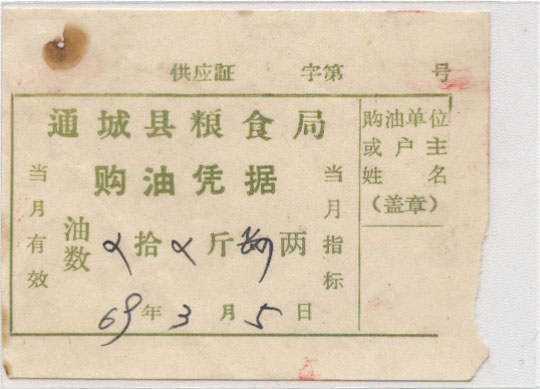 供应証 字第 号
通城县粮食局
购油凭据
当月有效
油数 拾 斤 两
当月指标
69年3月5日
购油单位
或户主
姓名
(盖章)